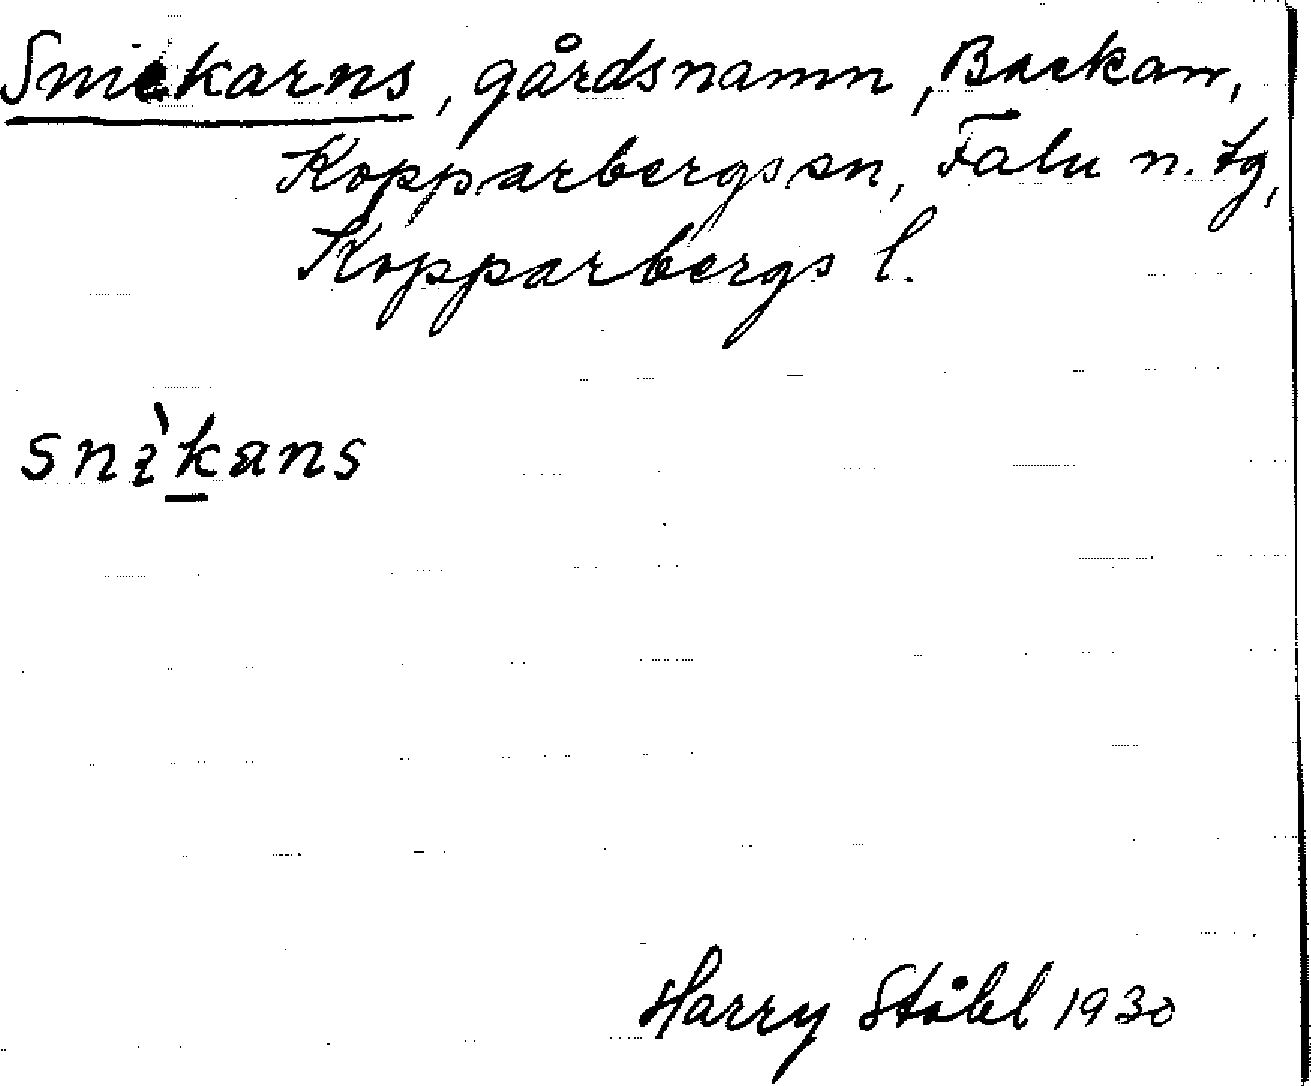 Snickarns, gårdsnamn, Backarr,
Kopparbergs sn, Falu n. tg,
Kopparbergs l.
snìkans
Harry Ståhl 1930